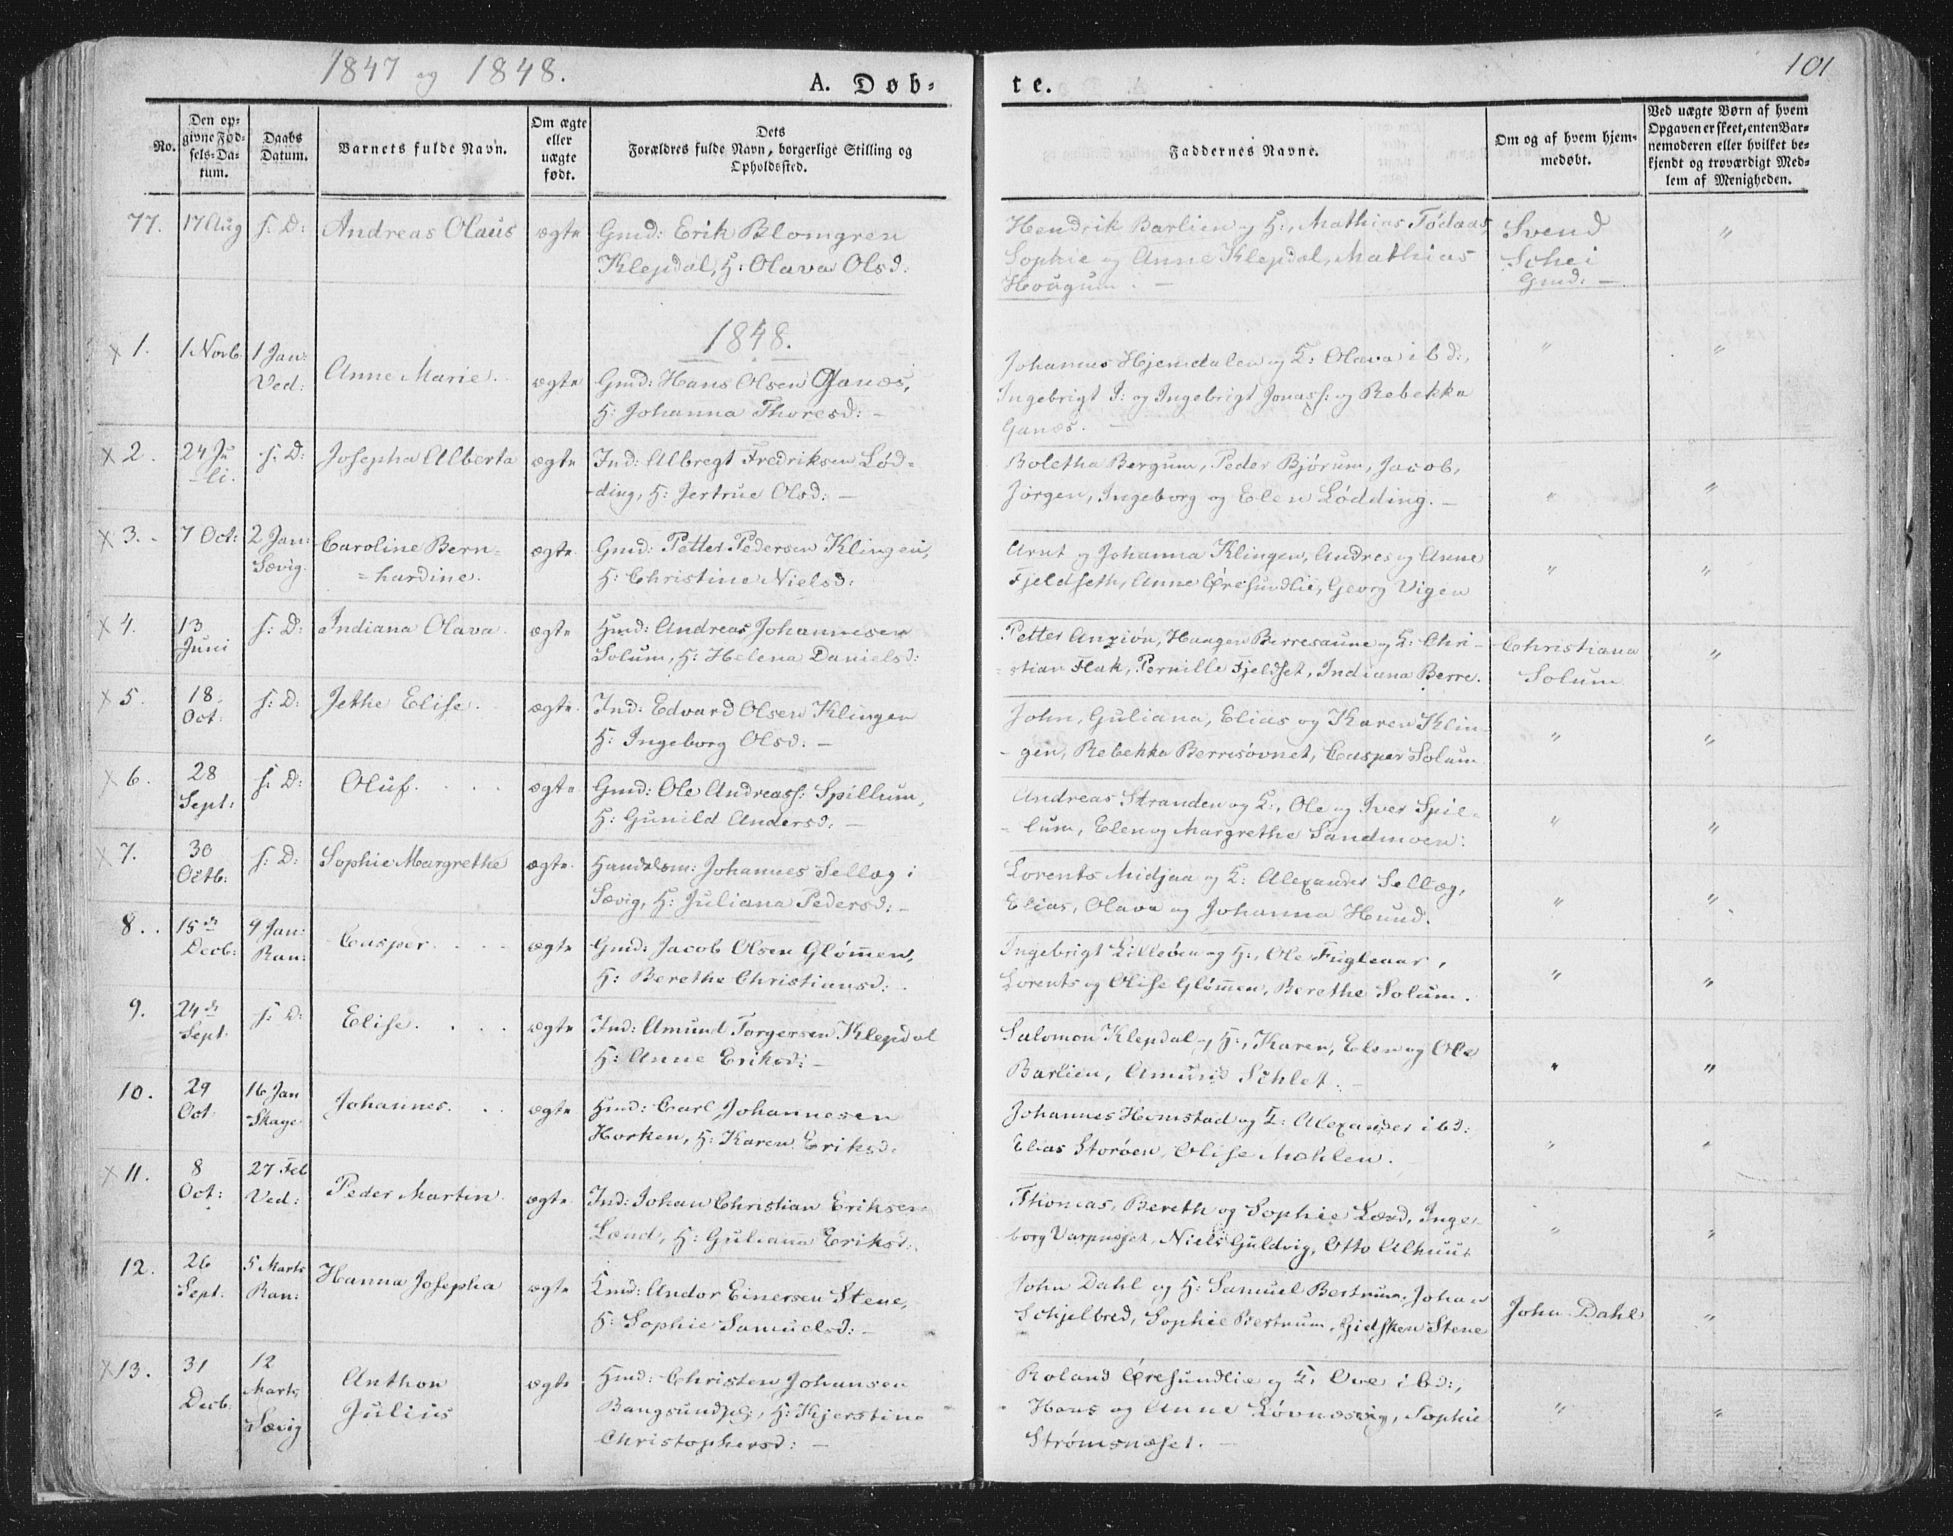 1847 og 1848.
A. Døb-
te.
101
No.
Den op-
givne Fød-
sels-Da-
tum.
Daabs
Datum.
Barnets fulde Navn.
Om ægte
eller
uægte
født.
Dets
Forældres fulde Navn, borgerlige Stilling og
Opholdssted.
Faddernes Navne.
Om og af hvem hjem-
medøbt.
Ved uægte Børn af hvem
Opgaven er skeet, enten Bar-
nemoderen eller hvilket be-
kjendt og troværdigt Med-
lem af Menigheden.
77. 17 Aug s: D: Andreas Olaus ægte Gmd: Erik Blomgren
Klepdal, H: Olava Olsd:
Hendrik Barlien og H:, Mathias Fødaas
Sophie og Anne Klepdal, Mathias
Hougum. —
Svend
Schei
Gmd: —
"
1848.
x 1. 1 Novb. 1 Jan:
Ved: Anne Marie. ægte Gmd: Hans Olsen Ganæs,
H: Johanna Thoresd: —
Johannes Hjemdalen og K: Olava ibd:,
Ingebrigt I: og Ingebrigt Jonass: og Rebekka
Ganæs. —
" "
x 2. 24 Ju
li. s: D: Josepha Alberta ægte Ind: Albregt Fredriksen Lød-
ding, H: Jertrue Olsd: —
Boletha Bergum, Peder Bjørum, Jacob,
Jørgen, Ingeborg og Elen Lødding. —
" "
x 3. 7 Oct: 2 Jan:
Sævig. Caroline Bern-
=hardine. ægte Gmd: Petter Pedersen Klingen,
H: Christine Nielsd:
Arnt og Johanna Klingen, Andres og Anne
Fjeldseth, Anne Øresundlie, Georg Vigen
" "
x 4. 13
Juni s: D: Indiana Olava. ægte Hmd: Andreas Johannesen
Solum, H: Helena Danielsd:
Petter Anziøn, Haagen Berresaune og K: Chri-
stian Flak, Pernille Fjeldset, Indiana Berre.
Christiana
Solum
"
x 5. 18
Oct: s: D: Jethe Elise. ægte Ind: Edvard Olsen Klingen
H: Ingeborg Olsd: —
John, Guliana, Elias og Karen Klin-
gen, Rebekka Berresøvnet, Casper Solum
" "
x 6. 28
Sept: s: D: Oluf. ægte Gmd: Ole Andreass: Spillum,
H: Gunild Andersd: —
Andreas Stranden og K:, Ole og Iver Spil-
lum, Elen og Margrethe Sandmoen:
" "
x 7. 30
Octb: s: D: Sophie Margrethe ægte Handelsm: Johannes Sellæg i
Sævig, H: Juliana Pedersd: —
Lorents Midjaa og K: Alexander Sellæg,
Elias, Olava og Johanna Hund.
" "
8. 15de
Decb: 9 Jan:
Ran: Casper. ægte Gmd: Jacob Olsen Glømen,
H: Berethe Christiansd:
Ingebrigt Lilleøen og H:, Ole Fugleaar,
Lorents og Olise Glømen, Berethe Solum.
" "
9. 24de
Sept. s: D: Elise. ægte Ind: Amund Torgersen Klepdal
H: Anne Eriksd: —
Salomon Klepdal og H:, Karen, Elen og Ole
Barlien, Amund Schlet. —
" "
10. 29
Oct. 16 Jan
Skage Johannes. ægte Hmd: Carl Johannesen
Horken, H: Karen Eriksd:
Johannes Homstad og K: Alexander ibd:
Elias Storøen, Olise Mohlen.
" "
x 11. 8
Oct: 27 Feb
Ved: Peder Martin. ægte Ind: Johan Christian Eriksen
Lænd, H: Guliana Eriksd:
Thomas, Bereth og Sophie Lænd, Inge-
borg Varpneset, Niels Guldvig, Otto Alhuus
" "
12. 26
Sept: 5 Marts
Ran: Hanna Josepha ægte Kmd: Andor Einersen Stene,
H: Sophie Samuelsd: —
John Dahl og H: Samuel Bertrum, Johan
Schjelbred, Sophie Bertrum, Gidsken Stene
John Dahl "
x 13. 31
Decb. 12
Marts
Sævig Anthon
Julius ægte Hmd: Christen Johansen
Bangsundplj, H: Kjerstine
Christophersd: —
Roland Øresundlie og K: Ove ibd:,
Hans og Anne Løvnæsvig, Sophie
Strømsnæset. —
" "